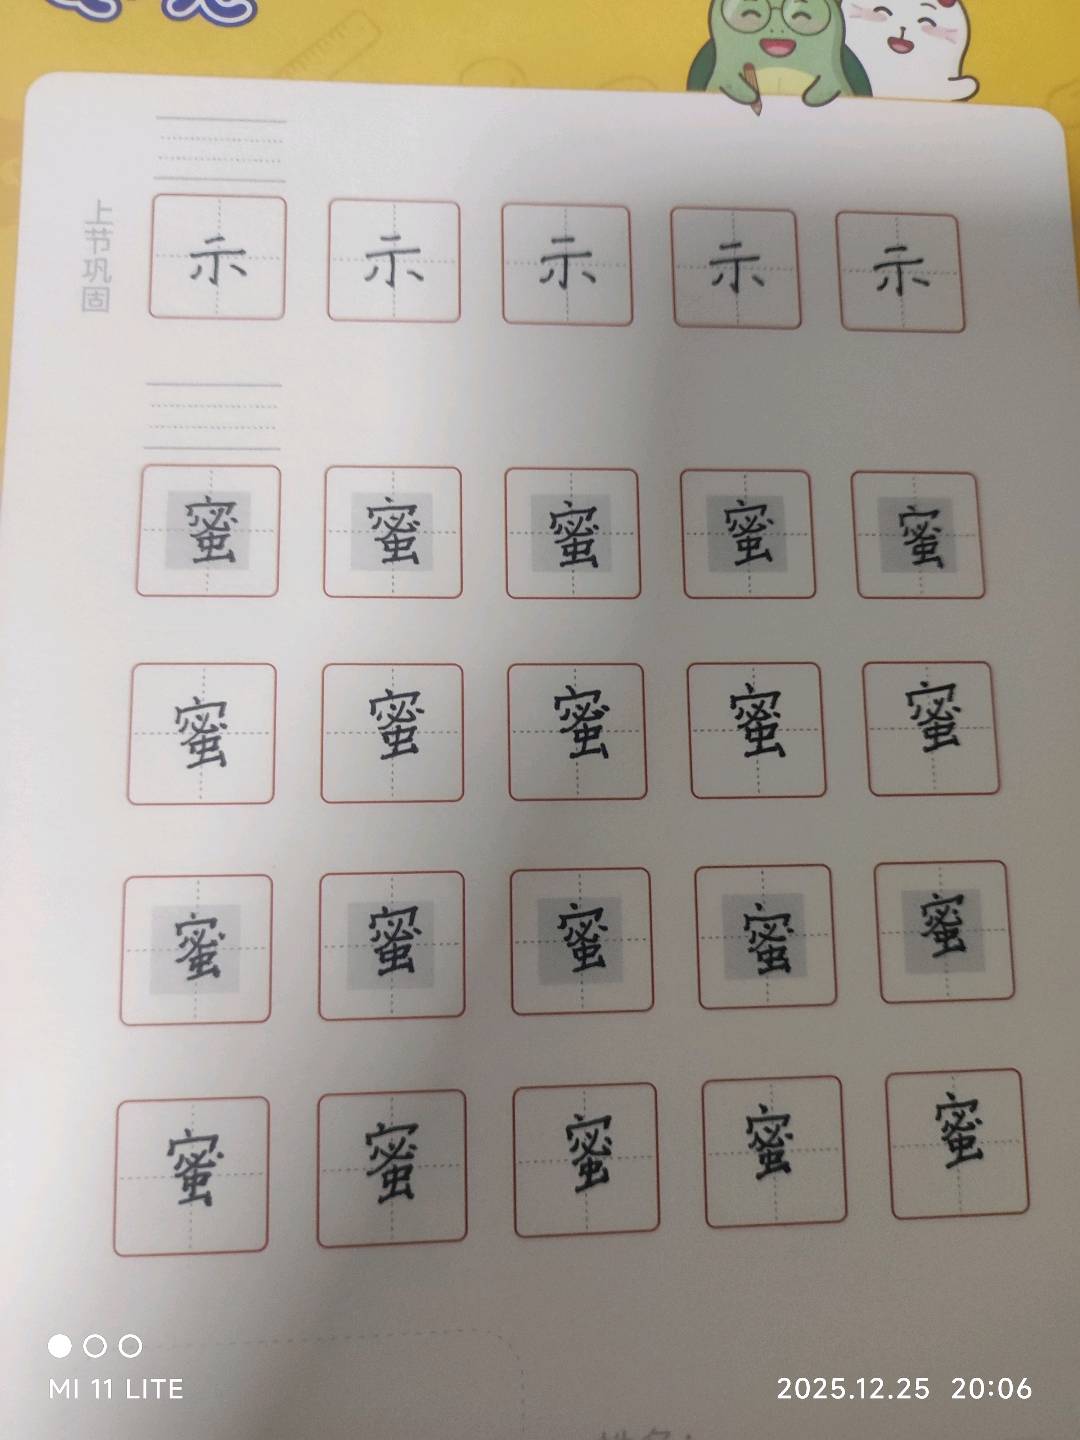 上节巩固
示 示 示 示 示
蜜 蜜 蜜 蜜 蜜
蜜 蜜 蜜 蜜 蜜
蜜 蜜 蜜 蜜 蜜
蜜 蜜 蜜 蜜 蜜
MI 11 LITE
2025.12.25 20:06